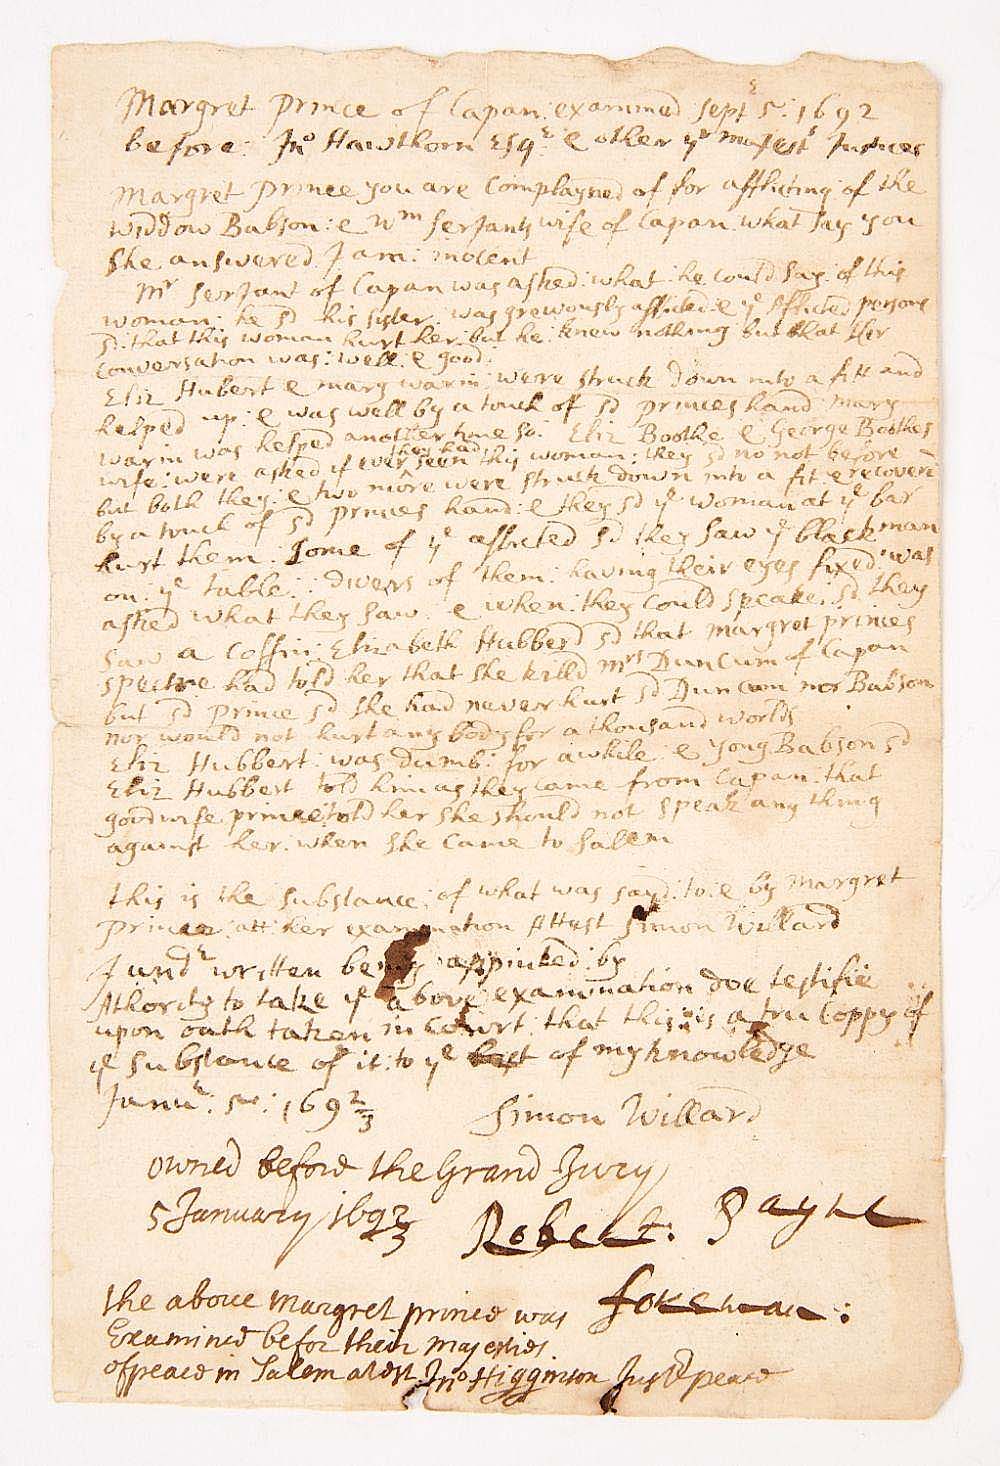 Margret prince of Capan: examined Sept 5: 1692
before: Jno Hawthorn Esqr: & other ye Majests Justices
Margret prince you are Complayned of for afflicting of the
widdow Babson: & Wm Serjants wife of Capan what say you
She answered I am: inocent
Mr Serjant of Capan was asked: what he could say of this
woman: he sd his sister: was grevously afflicted & ye Afflicted persons
sd: that this woman hurt her: but he: knew nothing but that her
Conversation was: well: & good:
Eliz Hubert & mary warin: were struck down into a fitt and
helped up: & was well by a touch of sd princes hand: mary
warin was helped another time so: Eliz Boothe & George Boothes
wife: were asked if ever they had seen this woman: they sd no not before
but both they: & two more were struck down into a fit: & recoverd
by a touch of sd princes hand: & they sd ye woman at ye bar
hurt them: Some of ye afflicted sd they saw ye black man
on: ye table:: divers of them: having their eyes fixed: was
asked what they saw & when: they could speake: sd they
saw a coffin: Elizabeth Hubberd sd that margret princes
spectre had told her that she killd mrs Duncum of Capan
but sd prince sd she had never hurt sd Duncum nor Babson
nor would not hurt any body for a thousand worlds
Eliz Hubbert: was dumb: for a while: & yong Babson sd
Eliz Hubbert told him as they came from Capan: that
goodwife prince told her she should not speak any thing
against her: when she came to Salem
this is the substance: of what was sayd: to: & by Margret
prince: att: her examination Attest Simon Willard
I undr written being appinted: by
Athority to take ye above examination doe testifie
upon oath taken in court: that this: is a tru Coppy of
ye substance of it: to ye best of my knowledge
Janur: 5: 1692/3
Simon Willard
owned before the Grand Jury
5 January 1692/3
Robert: Payne
foreman:
the above Margret prince was
Examined befor their majesties
of peace in Salem atest Jno Higginson Just peace